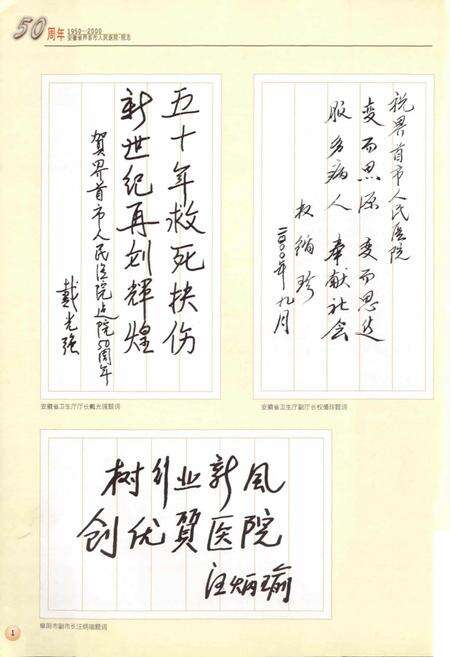 50周年 1950—2000
安徽省界首市人民医院·院志
五十年救死扶伤
新世纪再创辉煌
贺界首市人民医院建院50周年
戴光强
祝界首市人民医院
变而思源 变而思进
服务病人 奉献社会
权循珍
二〇〇〇年九月
安徽省卫生厅厅长戴光强题词
安徽省卫生厅副厅长权循珍题词
树行业新风
创优質医院
汪炳瑜
阜阳市副市长汪炳瑜题词
1